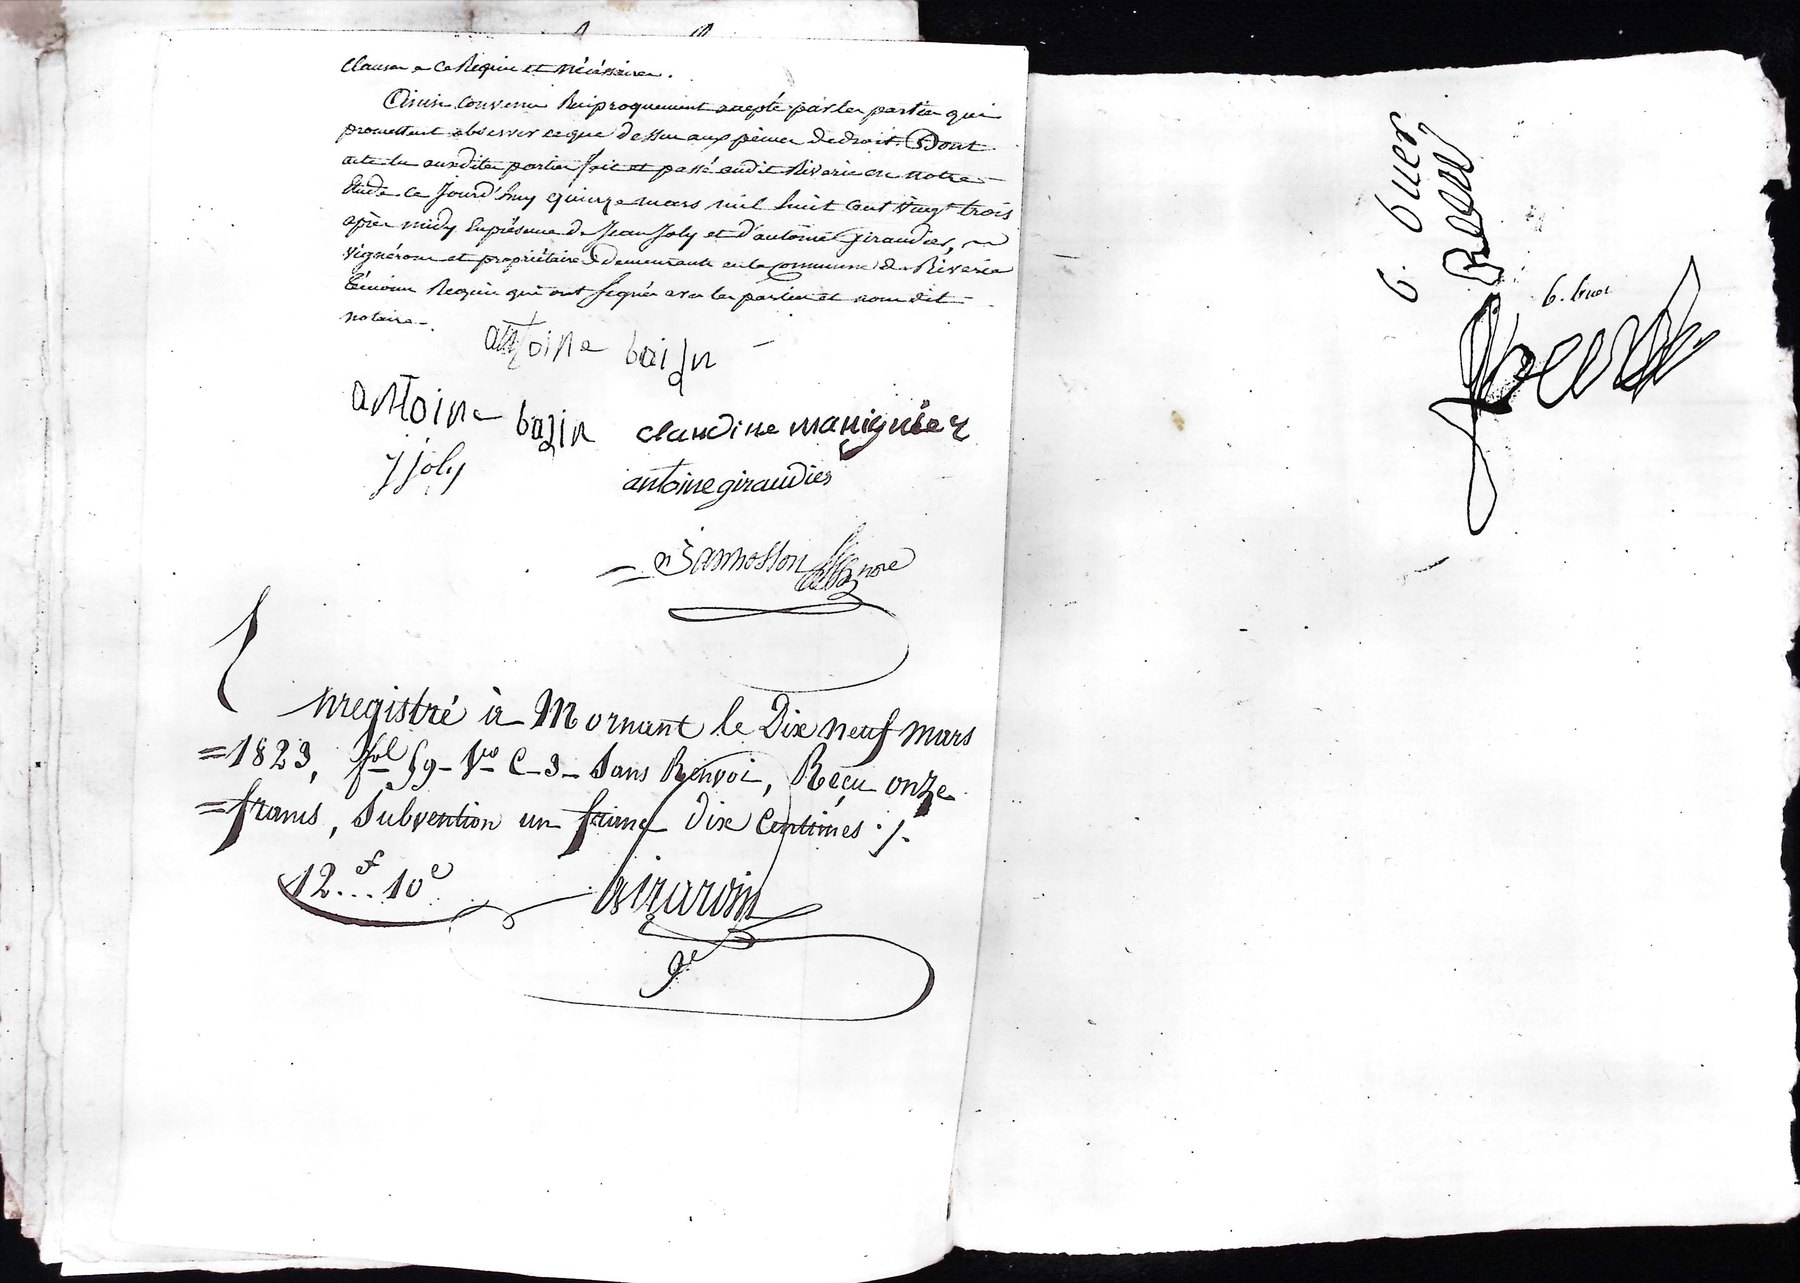 clauses a ce Requis et nécéssaires.
Ainsi convenu Reciproquement accepté par les parties qui
promettent observer ce que dessus aux peines de droit. Dont
acte lu auxdites parties fait et passé audit Riverie en notre
Etude ce Jourd'huy quinze mars mil huit cent vingt trois
après midy En présence de Jean Joly et d'antoine Giraudier,
vignérons et propriétaires demeurants en la Commune de Riverie
témoins Requis qui ont signés avec les parties et nous dit
notaire.
antoine baizn
antoine bazin claudine manignier
j joly
antoine giraudier
nre
Enregistré à Mornant le Dix neuf mars
=1823, fol 59 Vo C 3 Sans Renvoi, Reçu onze
=francs, Subvention un franc dix Centimes ./.
12f...10c
Girardin
6. buer
6. buer